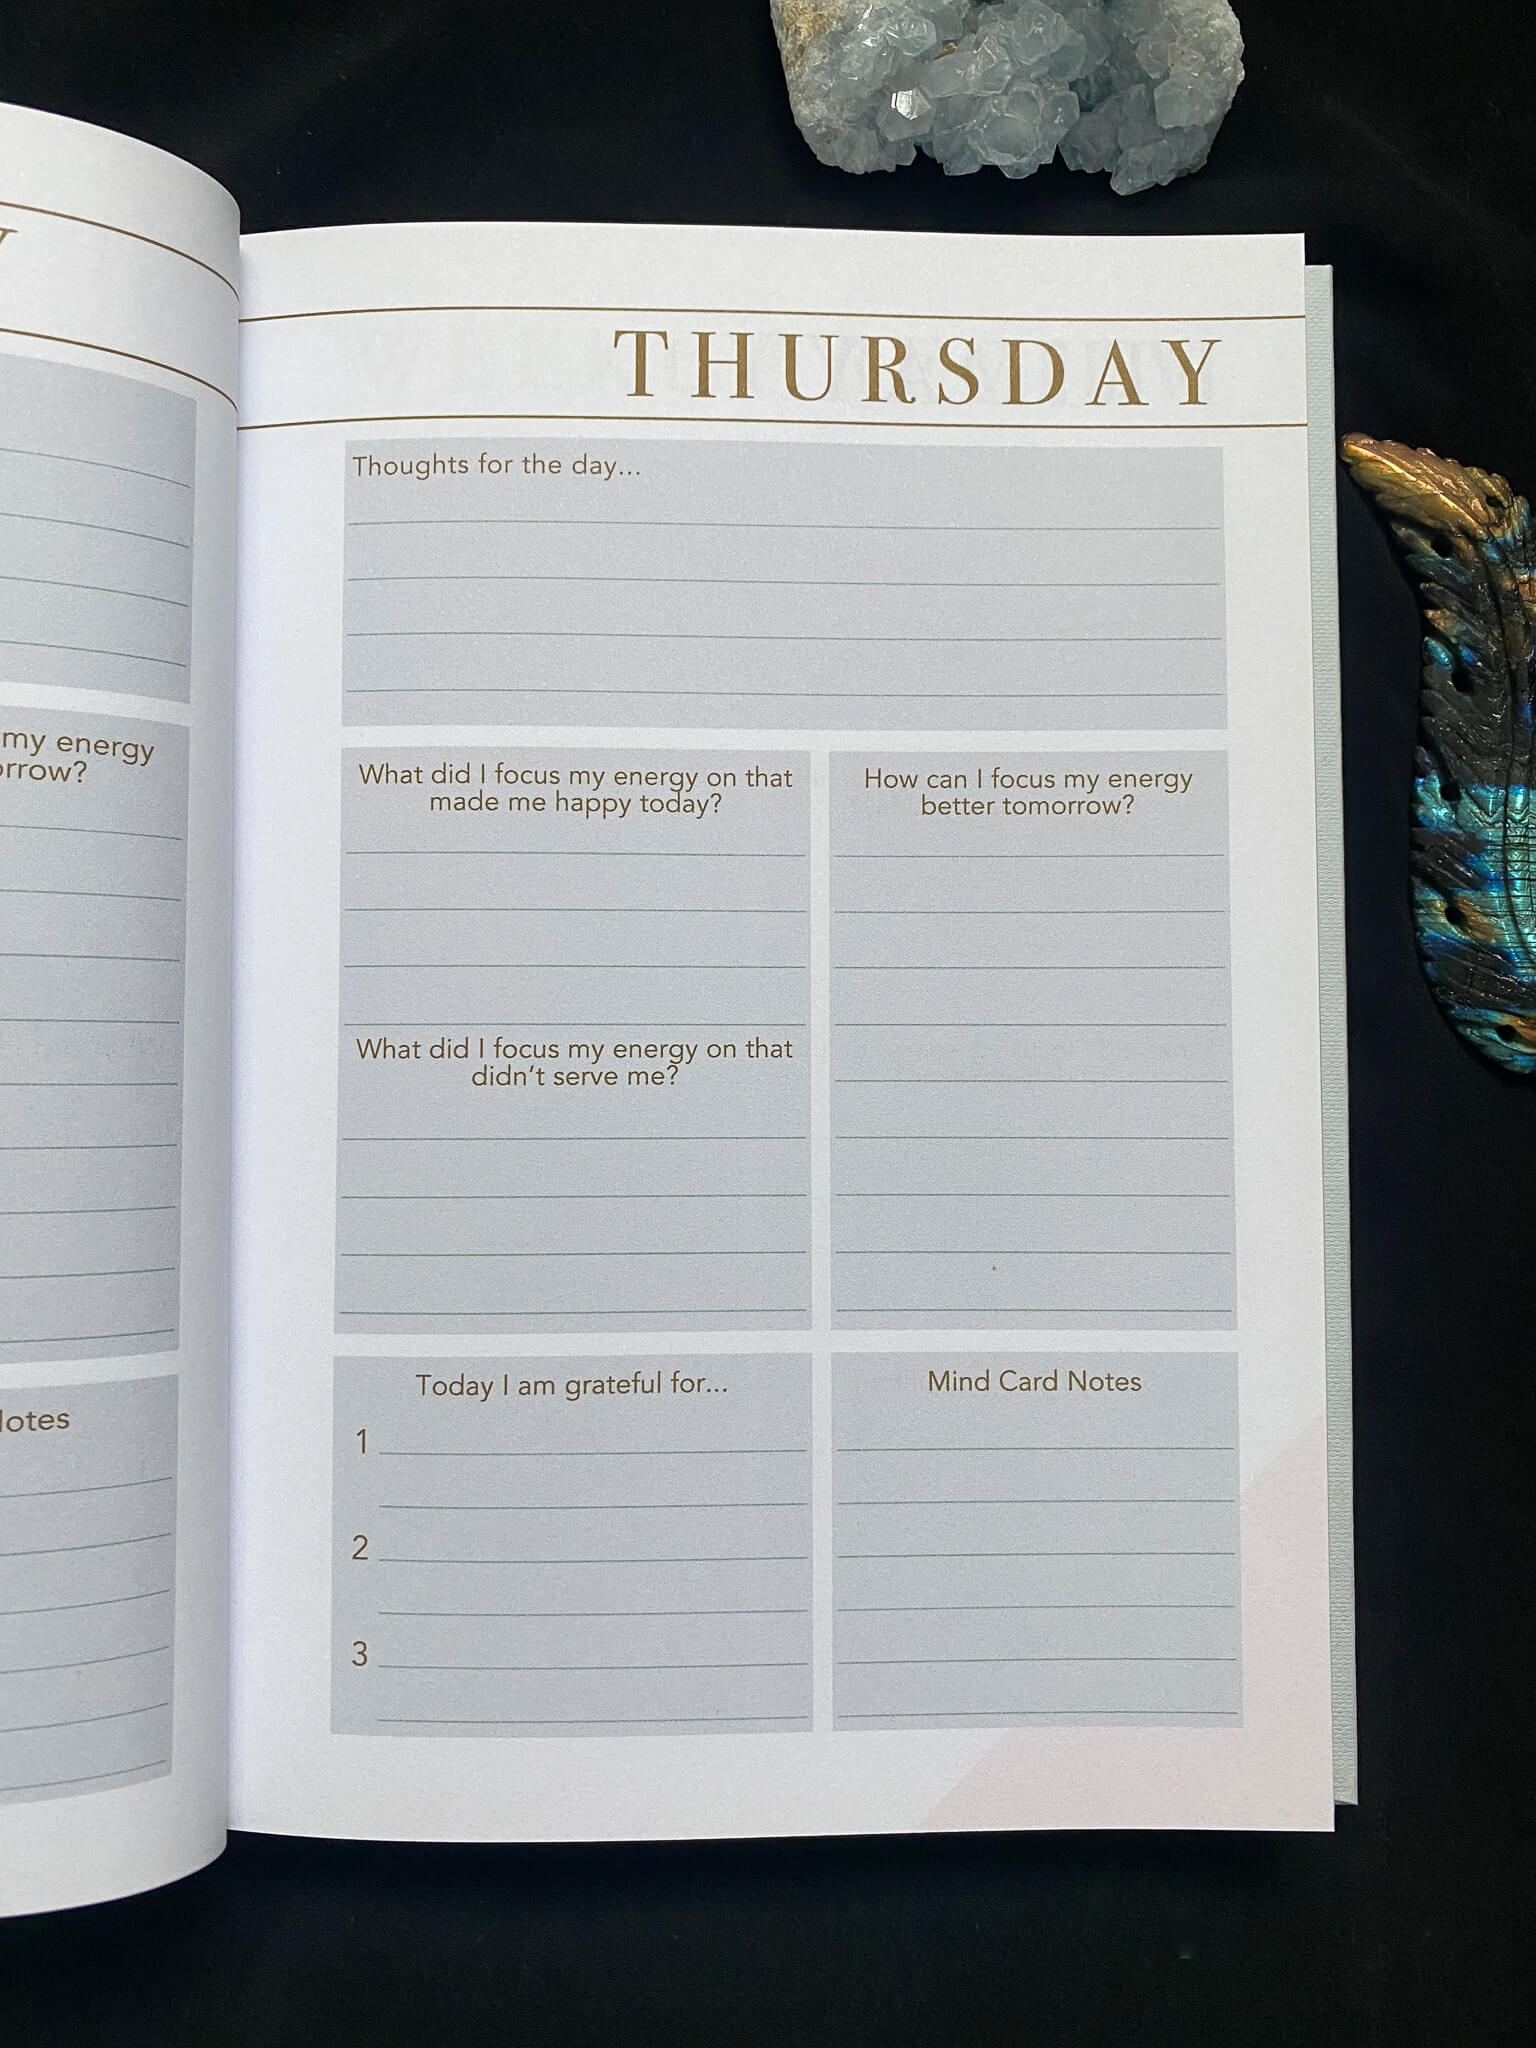 my energy
Notes
THURSDAY
Thoughts for the day...
What did I focus my energy on that
made me happy today?
What did I focus my energy on that
didn't serve me?
How can I focus my energy
better tomorrow?
Today I am grateful for...
1
2
3
Mind Card Notes